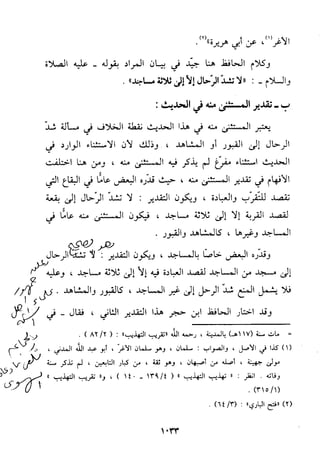 الأغر(١)، عن أبي هريرة»(٢).
وكلام الحافظ هنا جيّد في بيان المراد بقوله - عليه الصلاة
والسلام - : «لا تشدّ الرّحال إلاّ إلى ثلاثة مساجد».
ب - تقدير المستثنى منه في الحديث :
يعتبر المستثنى منه في هذا الحديث نقطة الخلاف في مسألة شدّ
الرحال إلى القبور أو المشاهد ، وذلك لأن الاستثناء الوارد في
الحديث استثناء مفرّغ لم يذكر فيه المستثنى منه ، ومن هنا اختلفت
الأفهام في تقدير المستثنى منه ، حيث قدّره البعض عامًّا في البقاع التي
تقصد للتّقرب والعبادة ، ويكون التقدير : لا تشدّ الرّحال إلى بقعة
تقصد القربة إلاّ إلى ثلاثة مساجد ، فيكون المستثنى منه عامًّا في
المساجد وغيرها ، كالمشاهد والقبور .
وقدّره البعض خاصًّا بالمساجد ، ويكون التقدير : لا تشدّ الرحال
إلى مسجد من المساجد لقصد العبادة فيه إلاّ إلى ثلاثة مساجد ، وعليه
فلا يشمل المنع شدّ الرحل إلى غير المساجد ، كالقبور والمشاهد .
وقد اختار الحافظ ابن حجر هذا التقدير الثاني ، فقال - في
= مات سنة (١١٧هـ) بالمدينة ، رحمه الله «تقريب التهذيب» : (٨٢/٢) .
(١) كذا في الأصل ، والصواب : سلمان ، وهو سلمان الأغرّ ، أبو عبد الله المدني ،
مولى جهينة ، أصله من أصبهان ، وهو ثقة ، من كبار التابعين ، لم تذكر سنة
وفاته . انظر : «تهذيب التهذيب» (١٣٩/٤ - ١٤٠) ، و«تقريب التهذيب»
(٣١٥/١)
(٢) «فتح الباري» : (٦٤/٣)
١٠٣٣